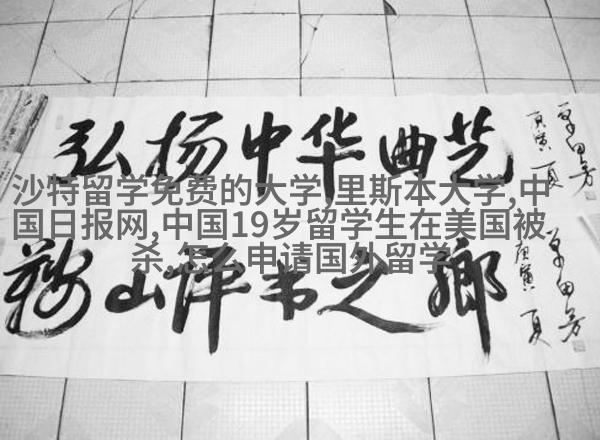 弘扬中华曲艺
单田芳
庚寅 夏
沙特留学免费的大学,里斯本大学,中
国日报网,中国19岁留学生在美国被
杀,怎么申请国外留学
鞍山评书之鄉
单田芳
庚寅 夏